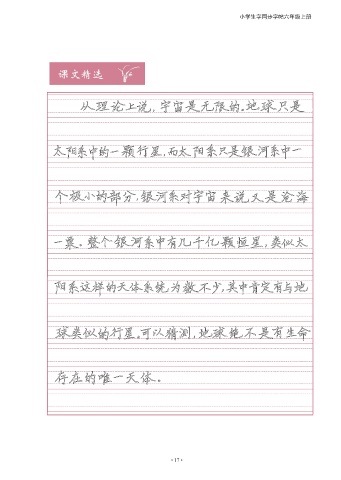 小学生字同步字帖六年级上册
课文精选
从理论上说，宇宙是无限的。地球只是
太阳系中的一颗行星，而太阳系只是银河系中一
个极小的部分，银河系对宇宙来说又是沧海
一粟。整个银河系中有几千亿颗恒星，类似太
阳系这样的天体系统为数不少，其中肯定有与地
球类似的行星。可以猜测，地球绝不是有生命
存在的唯一天体。
·17·